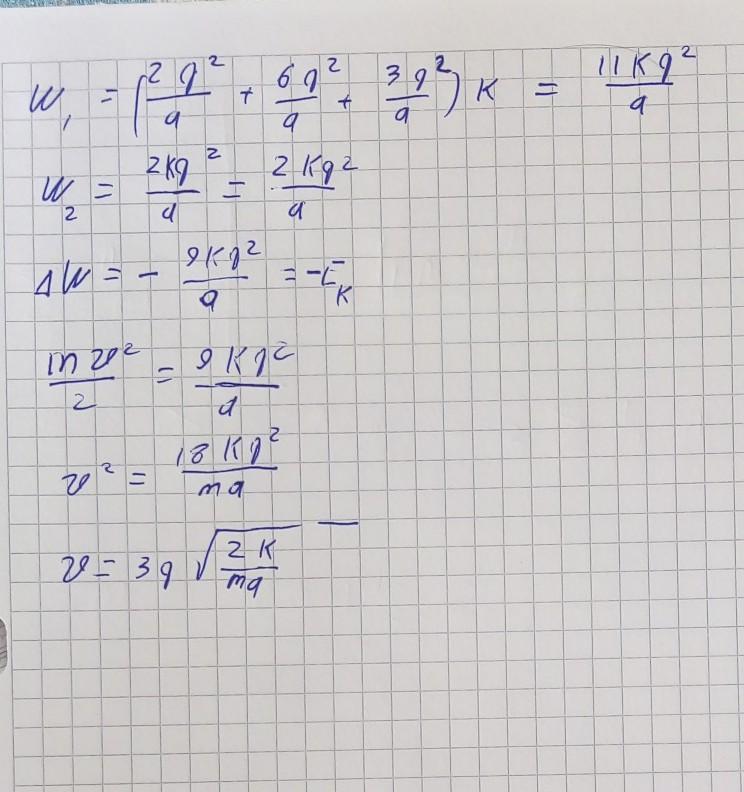 W₁ = (2q²/a + 6q²/a + 3q²/a) K = 11Kq²/a
W₂ = 2Kq²/a = 2Kq²/a
ΔW = - 9Kq²/a = -E_K
mv²/2 = 9Kq²/a
v² = 18Kq²/ma
v = 3q √(2K/ma)